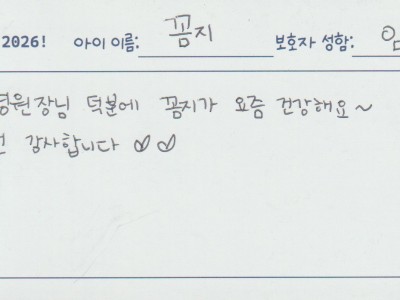 2026! 아이 이름: 꼼지 보호자 성함:
원장님 덕분에 꼼지가 요즘 건강해요~
감사합니다 ♡♡